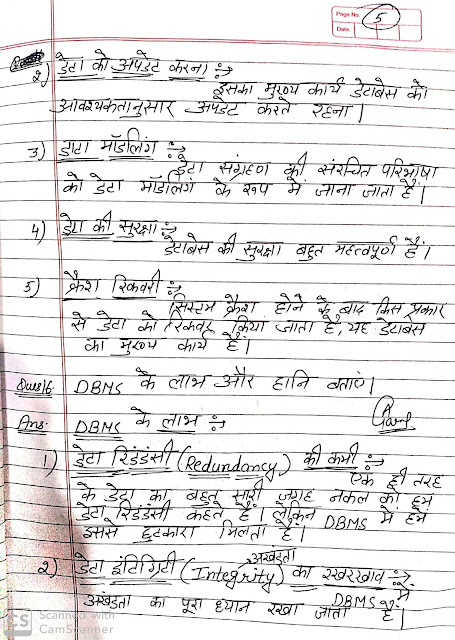 Page No. 5
Date
2) डेटा को अपडेट करना :->
इसका मुख्य कार्य डेटाबेस को
आवश्यकतानुसार अपडेट करते रहना।
3) डाटा मॉडलिंग :->
डेटा संग्रहण की संरचित परिभाषा
को डेटा मॉडलिंग के रूप में जाना जाता है।
4) डेटा की सुरक्षा :->
डेटाबेस की सुरक्षा बहुत महत्वपूर्ण हैं।
5) क्रैश रिकवरी :->
सिस्टम क्रैश होने के बाद किस प्रकार
से डेटा को रिकवर किया जाता है, यह डेटाबेस
का मुख्य कार्य है।
Ques16 DBMS के लाभ और हानि बताएं।
Ans DBMS के लाभ :->
1) डेटा रिडंडंसी (Redundancy) की कमी :->
एक ही तरह
के डेटा का बहुत सारी जगह नकल को हम
डेटा रिडंडंसी कहते हैं। लेकिन DBMS में हमें
इससे छुटकारा मिलता है।
2) डेटा इंटिग्रिटी (Integrity) अखंडता का रखरखाव :->
DBMS में
अखंडता का पूरा ध्यान रखा जाता है।
CS Scanned with
CamScanner